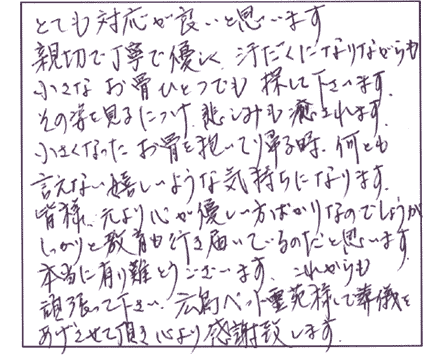 とても対応が良いと思います
親切で丁寧で優しく、汗だくになりながらも
小さなお骨ひとつでも探して下さいます。
その姿を見るにつけ、悲しみも癒されます。
小さくなったお骨を抱いて帰る時、何とも
言えない嬉しいような気持ちになります。
皆様、元より心が優しい方ばかりなのでしょうが
しっかりと教育も行き届いているのだと思います
本当に有り難とうございます、これからも
頑張って下さい、広島ペット霊苑様して葬儀を
あげさせて頂き心より感謝致します。